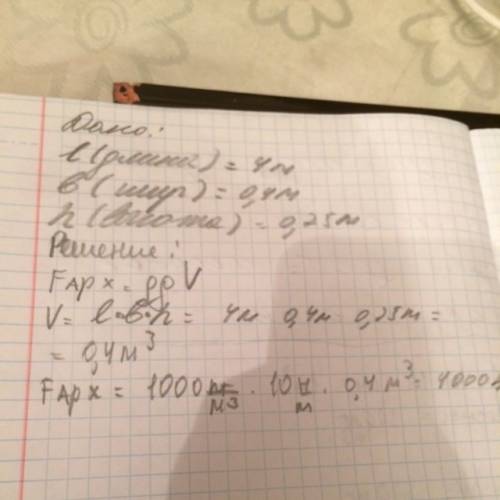 Дано:
l (длина) = 4м
b (шир) = 0,4м
h (высота) = 0,25м
Решение:
Fарх = gρV
V = l·b·h = 4м 0,4м 0,25м =
= 0,4м³
Fарх = 1000 кг/м³ · 10 · 0,4м³ = 4000